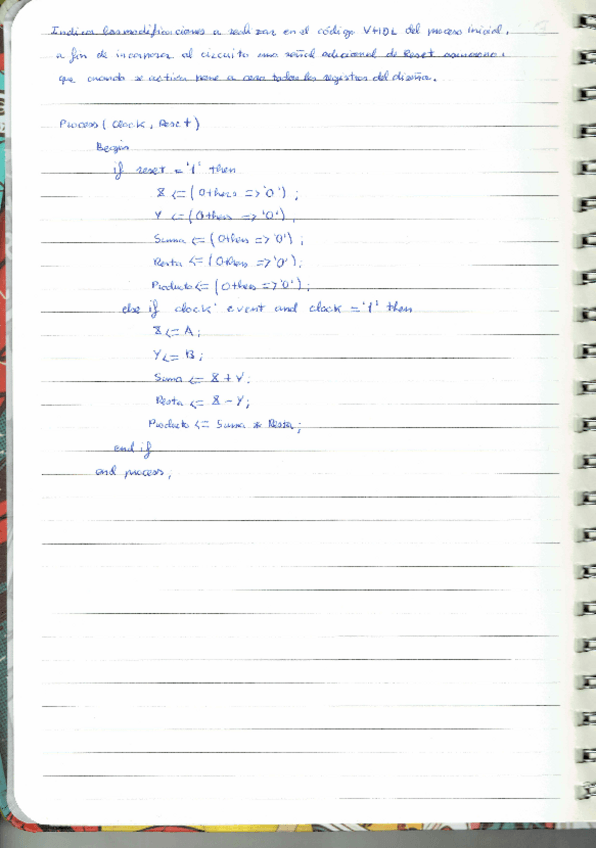 Indicar las modificaciones a realizar en el código VHDL del proceso inicial,
a fin de incorporar al circuito una señal adicional de Reset asíncrono,
que cuando se activa pone a cero todos los registros del diseño.
Process (Clock, Reset)
Begin
if reset = '1' then
X <= (Others => '0') ;
Y <= (Others => '0') ;
Suma <= (Others => '0') ;
Resta <= (Others => '0') ;
Producto <= (Others => '0') ;
else if clock' event and clock = '1' then
X <= A ;
Y <= B ;
Suma <= X + Y ;
Resta <= X - Y ;
Producto <= Suma * Resta ;
end if
end process ;